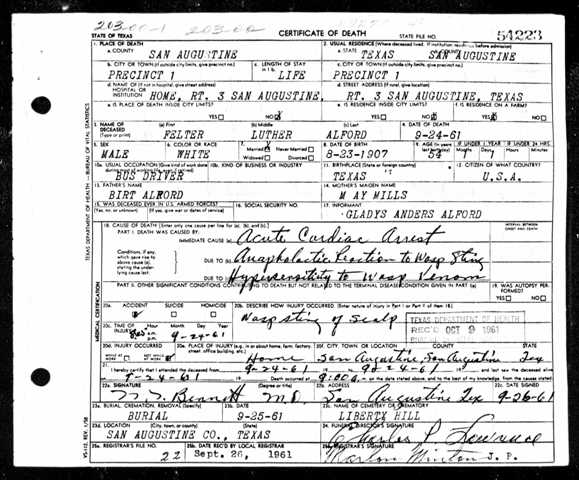 203.00-1 203.00
STATE OF TEXAS CERTIFICATE OF DEATH STATE FILE NO. 54223
1. PLACE OF DEATH 2. USUAL RESIDENCE (Where deceased lived. If institution: residence before admission)
a. COUNTY SAN AUGUSTINE a. STATE TEXAS b. COUNTY SAN AUGUSTINE
b. CITY OR TOWN (If outside city limits, give precinct no.) c. LENGTH OF STAY c. CITY OR TOWN (If outside city limits, give precinct no.)
PRECINCT 1 LIFE PRECINCT 1
d. NAME OF (If not in hospital, give street address) d. STREET ADDRESS (If rural, give location)
HOSPITAL OR INSTITUTION HOME, RT. 3 SAN AUGUSTINE, RT. 3 SAN AUGUSTINE, TEXAS
e. IS PLACE OF DEATH INSIDE CITY LIMITS? e. IS RESIDENCE INSIDE CITY LIMITS? f. IS RESIDENCE ON A FARM?
YES NO YES NO YES NO
3. NAME OF DECEASED (a) First (b) Middle (c) Last 4. DATE OF DEATH
(Type or print) FELTER LUTHER ALFORD 9-24-61
5. SEX 6. COLOR OR RACE 7. Married Never Married 8. DATE OF BIRTH 9. AGE IF UNDER 1 YEAR IF UNDER 24 HRS
MALE WHITE Widowed Divorced 8-23-1907 54 1 1
10a. USUAL OCCUPATION 10b. KIND OF BUSINESS OR INDUSTRY 11. BIRTHPLACE (State or foreign country) 12. CITIZEN OF WHAT COUNTRY?
BUS DRIVER TEXAS U.S.A.
13. FATHER'S NAME 14. MOTHER'S MAIDEN NAME
BIRT ALFORD MAY MILLS
15. WAS DECEASED EVER IN U.S. ARMED FORCES? 16. SOCIAL SECURITY NO. 17. INFORMANT
GLADYS ANDERS ALFORD
18. CAUSE OF DEATH
PART I. DEATH WAS CAUSED BY:
IMMEDIATE CAUSE (a) Acute Cardiac Arrest
DUE TO (b) Anaphalactic Reaction to Wasp Sting
DUE TO (c) Hypersensitivity to Wasp Venom
PART II. OTHER SIGNIFICANT CONDITIONS CONTRIBUTING TO DEATH BUT NOT RELATED TO THE TERMINAL DISEASE CONDITION GIVEN IN PART I(a) 19. WAS AUTOPSY PERFORMED?
YES NO
20a. ACCIDENT SUICIDE HOMICIDE 20b. DESCRIBE HOW INJURY OCCURRED
Wasp sting of Scalp
TEXAS DEPARTMENT OF HEALTH
REC'D OCT 9 1961
20c. TIME OF INJURY Hour Month Day Year
9-24-61
20d. INJURY OCCURRED 20e. PLACE OF INJURY 20f. CITY, TOWN, OR LOCATION COUNTY STATE
Home San Augustine, San Augustine Tex
21. I hereby certify that I attended the deceased from 9-24-61 to 9-24-61 and last saw the deceased alive
9-24-61 Death occurred at 9:00 a m. on the date stated above, and to the best of my knowledge, from the causes stated
22a. SIGNATURE (Degree or title) 22b. ADDRESS 22c. DATE SIGNED
Bennett M.D. San Augustine Tex 9-26-61
23a. BURIAL, CREMATION, REMOVAL (Specify) 23b. DATE 23c. NAME OF CEMETERY OR CREMATORY
BURIAL 9-25-61 LIBERTY HILL
23d. LOCATION (City, town, or county) (State) 24. FUNERAL DIRECTOR'S SIGNATURE
SAN AUGUSTINE CO., TEXAS Charles
25a. REGISTRAR'S FILE NO. 25b. DATE REC'D BY LOCAL REGISTRAR
22 Sept. 26, 1961 Marlon Minton J.P.
TEXAS DEPARTMENT OF HEALTH — BUREAU OF VITAL STATISTICS
MEDICAL CERTIFICATION